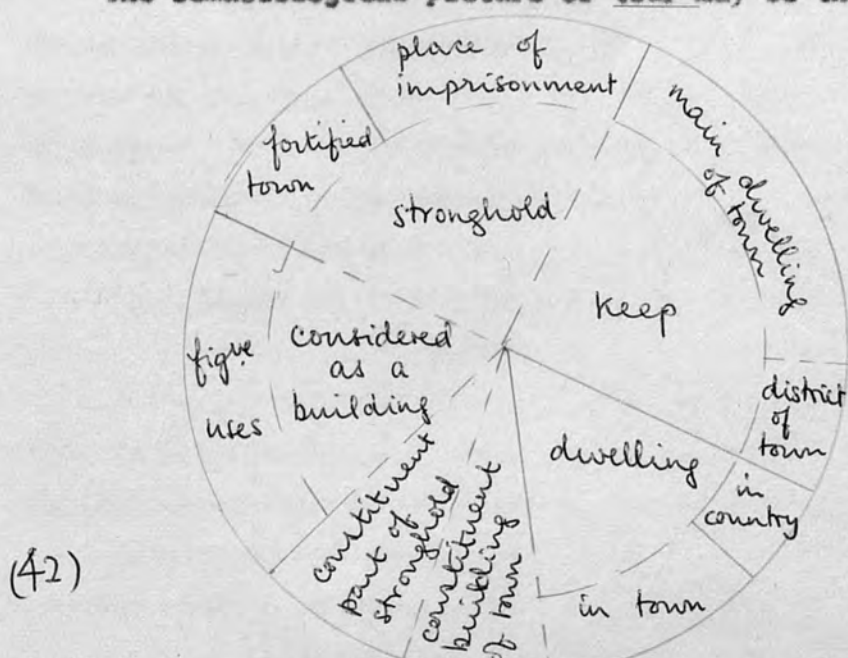 place of
imprisonment
main dwelling
of town
fortified
town
stronghold
keep
figve
uses
considered
as a
building
district
of
town
dwelling
in
country
in town
constituent
part of
stronghold
constituent
building
of town
(42)